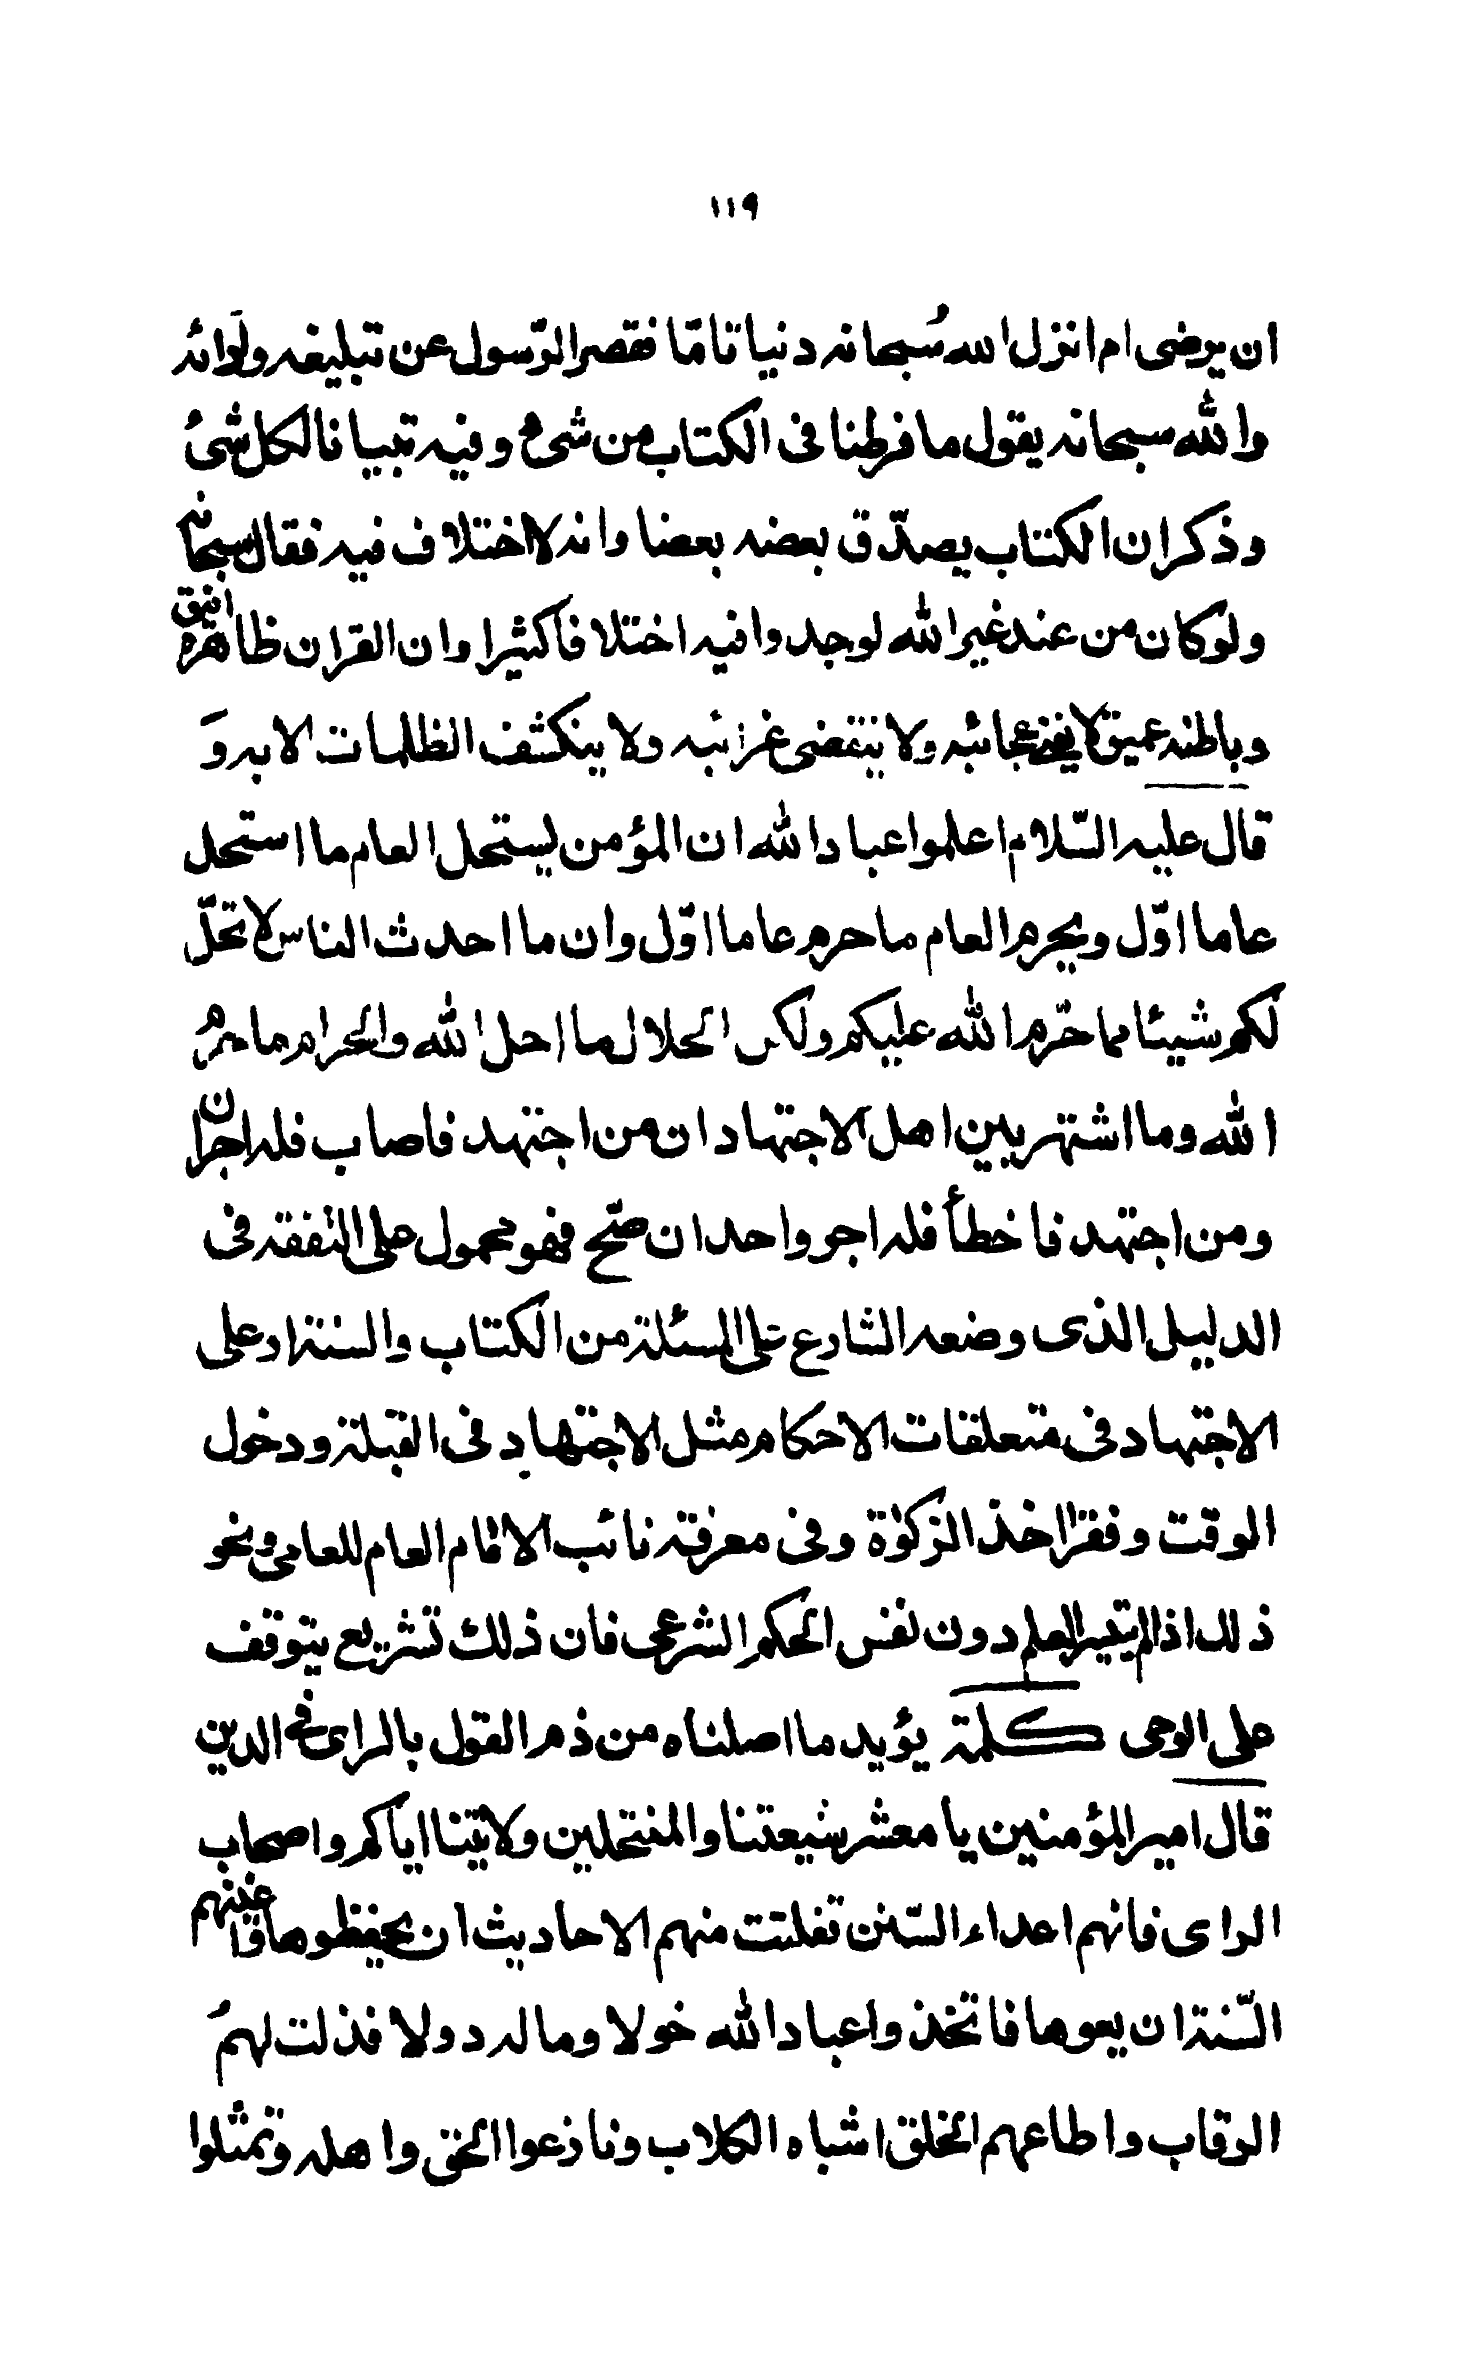 ١١٩
ان يرضى ام انزل الله سُبحانه دنيا تامّا فقصر الرّسول عن تبليغه ولَدائه
والله سبحانه يقول ما فرطنا فى الكتاب من شئ وفيه تبيانا لكل شئ
وذكر ان الكتاب يصدّق بعضه بعضا وانه لا اختلاف فيه فقال سبحانه
ولو كان من عند غير الله لوجدوا فيه اختلافا كثيرا وان القران ظاهره انيق
وباطنه عميق لا يفنى عجائبه ولا ينقضى غرائبه ولا ينكشف الظلمات الا به وَ
قال عليه السّلام اعلموا عباد الله ان المؤمن يستحل العام ما استحل
عاما اوّل ويحرم العام ما حرم عاما اوّل وان ما احدث الناس لا تحلّ
لكم شيئا مما حرّم الله عليكم ولكن الحلال ما احل الله والحرام ما حرمُ
الله وما اشتهر بين اهل الاجتهاد ان من اجتهد فاصاب فله اجران
ومن اجتهد فاخطأ فله اجر واحد ان صّح فهو محمول على التفقه فى
الدليل الذى وضعه الشارع على المسئلة من الكتاب والسنة او على
الاجتهاد فى متعلقات الاحكام مثل الاجتهاد فى القبلة ودخول
الوقت وفقر اخذ الزكوٰة وفى معرفة نائب الامام العام للعامى ونحو
ذلك اذا لم يتيسر العلم دون نفس الحكم الشرعى فان ذلك تشريع يتوقف
على الوحى كلمة يؤيد ما اصلناه من ذم القول بالراى فى الدين
قال امير المؤمنين يا معشر شيعتنا والمنتحلين ولايتنا اياكم واصحاب
الراى فانهم اعداء السّنن تفلتت منهم الاحاديث ان يحفظوها واعيتهم
السّنة ان يعوها فاتخذوا عباد الله خولا وماله دولا فذلت لهمُ
الرقاب واطاعهم الخلق اشباه الكلاب ونازعوا الحق واهله وتمثلوا